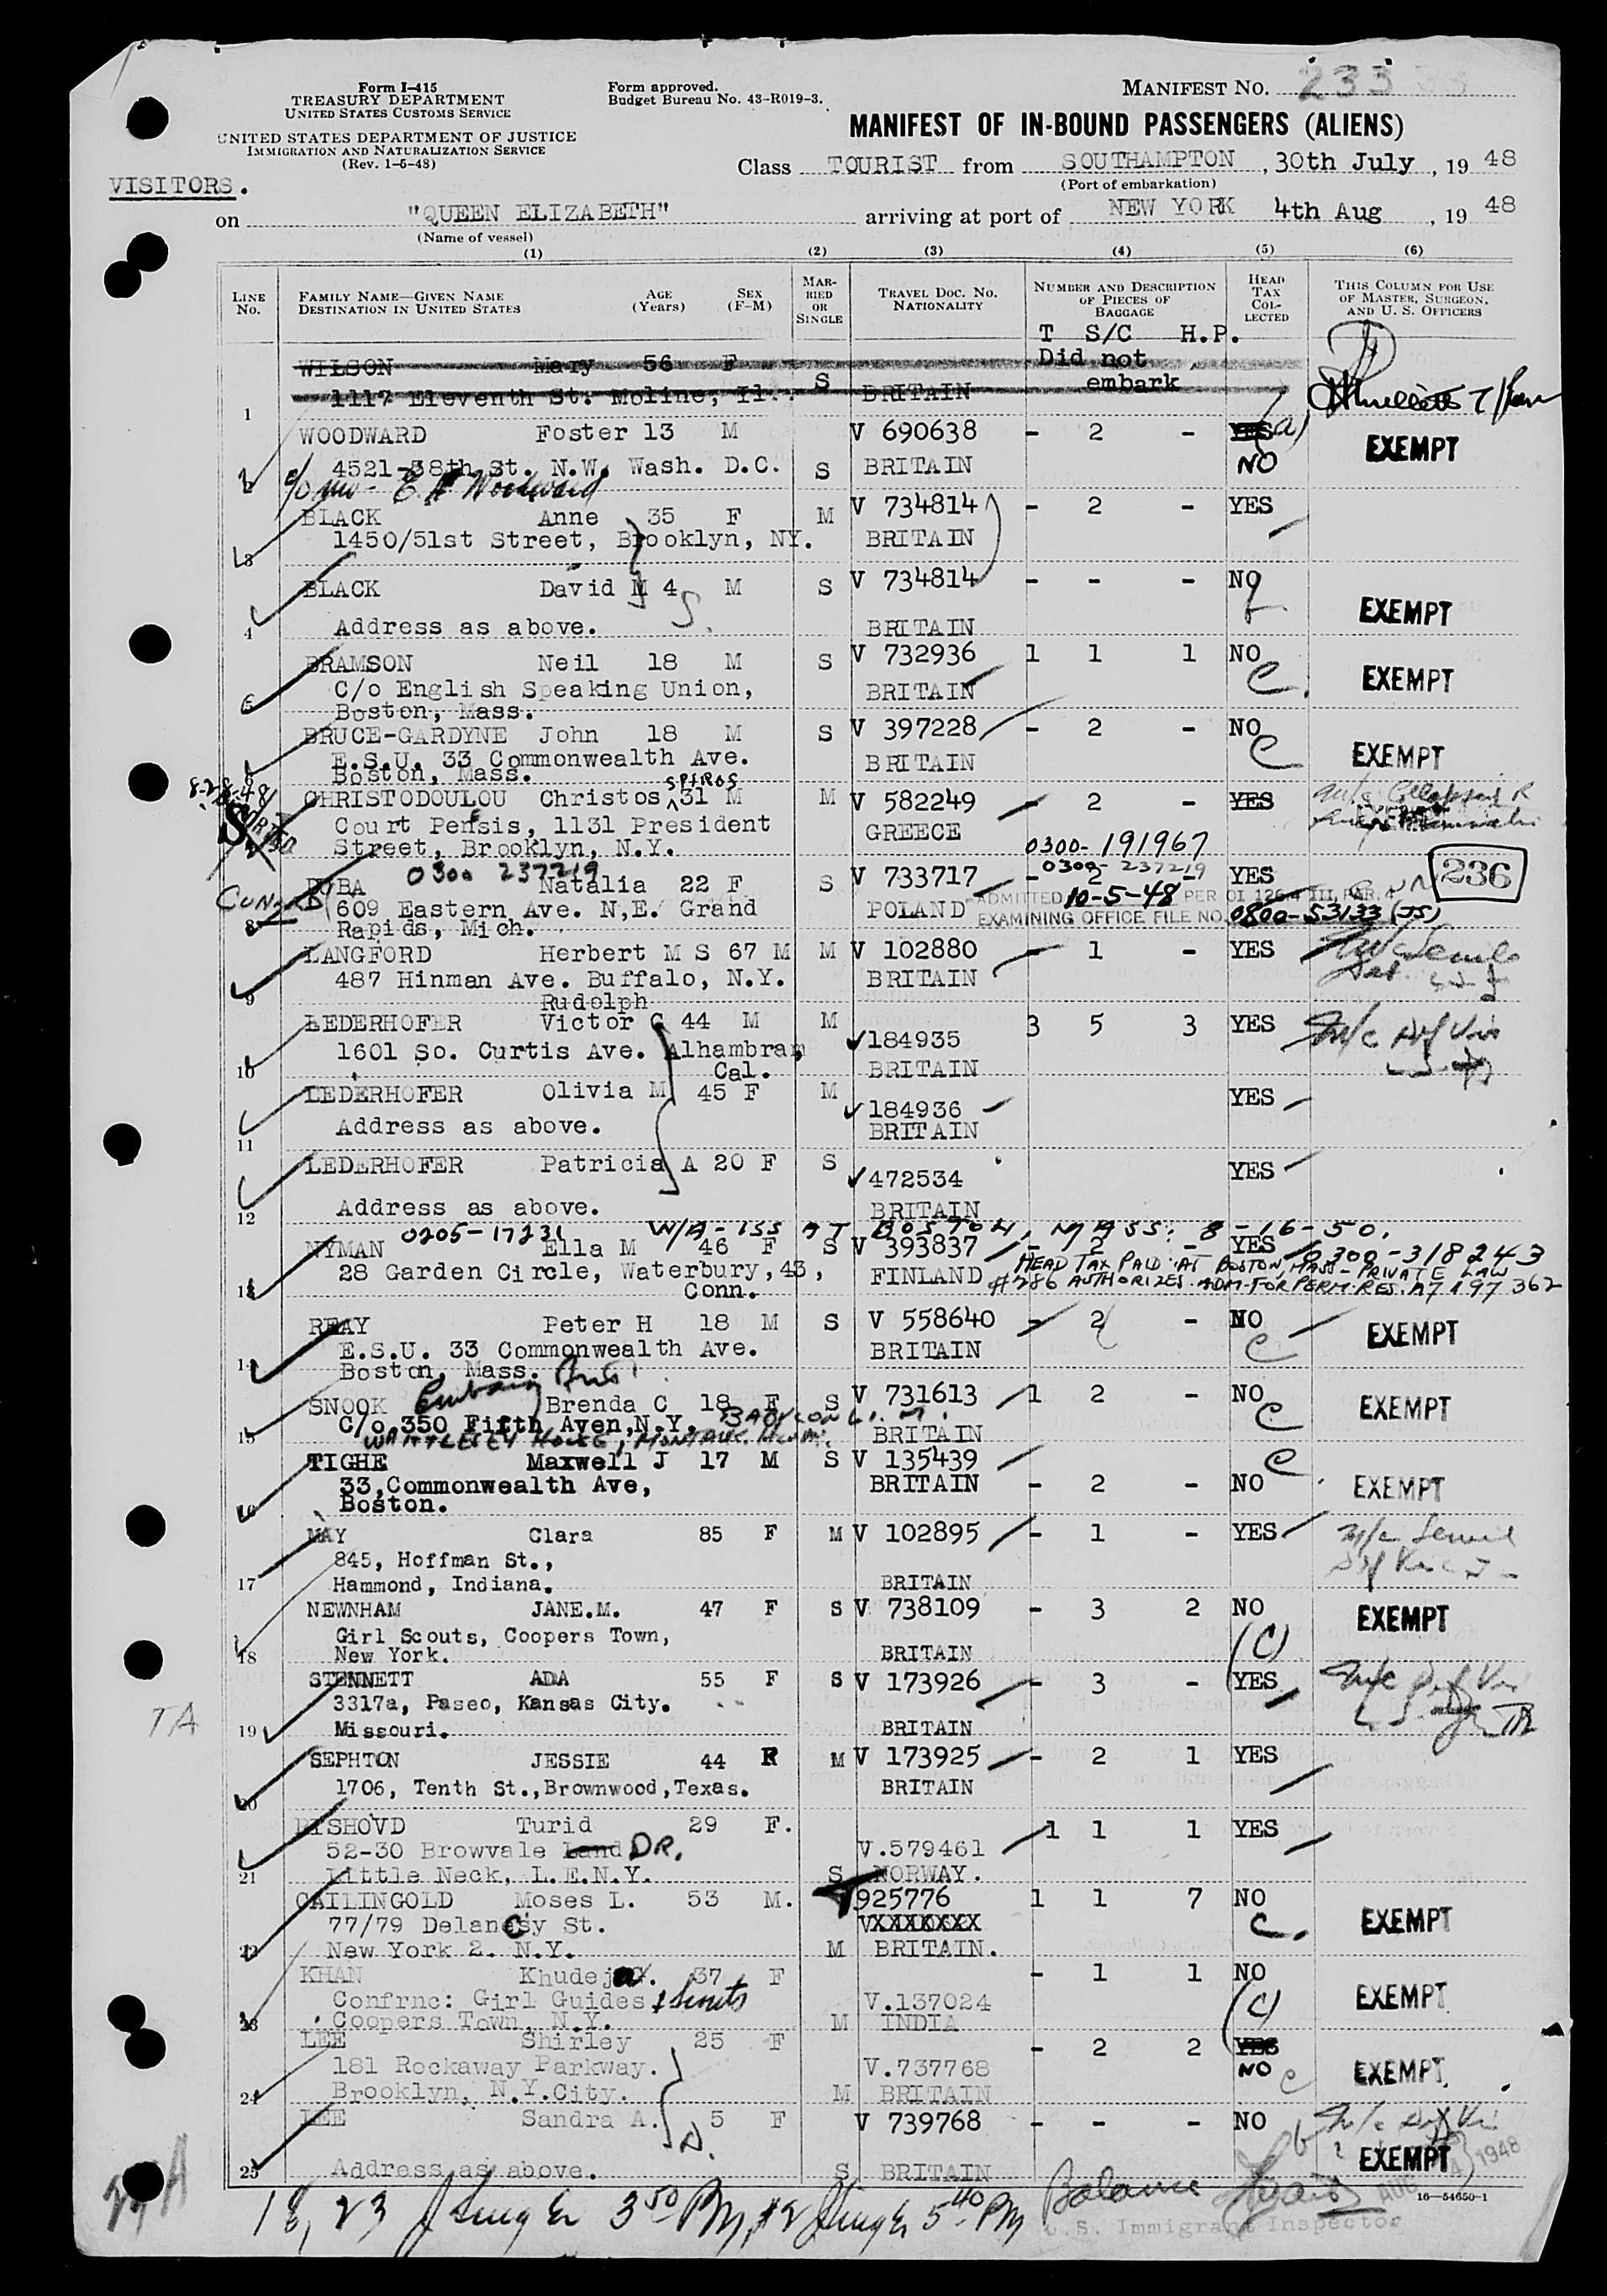 Form I-415
TREASURY DEPARTMENT
UNITED STATES CUSTOMS SERVICE
UNITED STATES DEPARTMENT OF JUSTICE
IMMIGRATION AND NATURALIZATION SERVICE
(Rev. 1-6-48)
Form approved.
Budget Bureau No. 43-R019-3.
MANIFEST NO. 233
MANIFEST OF IN-BOUND PASSENGERS (ALIENS)
Class TOURIST from SOUTHAMPTON, 30th July, 19 48
(Port of embarkation)
VISITORS.
on "QUEEN ELIZABETH" arriving at port of NEW YORK 4th Aug, 19 48
(Name of vessel)
(1) (2) (3) (4) (5) (6)
LINE No. FAMILY NAME—GIVEN NAME DESTINATION IN UNITED STATES AGE (Years) SEX (F-M) MARRIED OR SINGLE TRAVEL DOC. NO. NATIONALITY NUMBER AND DESCRIPTION OF PIECES OF BAGGAGE HEAD TAX COLLECTED THIS COLUMN FOR USE OF MASTER, SURGEON, AND U. S. OFFICERS
T S/C H.P.
WILSON Mary 56 F Did not
1 1117 Eleventh St. Moline, Il. S BRITAIN embark
WOODWARD Foster 13 M V 690638 - 2 - YES (a) EXEMPT
2 4521-38th St. N.W. Wash. D.C. S BRITAIN NO
c/o E Woodward
BLACK Anne 35 F M V 734814 - 2 - YES
3 1450/51st Street, Brooklyn, NY. BRITAIN
BLACK David M 4 M S V 734814 - - - NO
4 Address as above. BRITAIN EXEMPT
BRAMSON Neil 18 M S V 732936 1 1 1 NO
5 C/o English Speaking Union, BRITAIN C. EXEMPT
Boston, Mass.
BRUCE-GARDYNE John 18 M S V 397228 - 2 - NO
E.S.U. 33 Commonwealth Ave. BRITAIN C EXEMPT
Boston, Mass. SPIROS
8-28-48
CHRISTODOULOU Christos 31 M M V 582249 - 2 - YES
Court Pensis, 1131 President GREECE
Street, Brooklyn, N.Y. 0300-191967
0300 237219 0300-237219
DYBA Natalia 22 F S V 733717 - 2 - YES 236
CUNARD 609 Eastern Ave. N,E. Grand POLAND ADMITTED 10-5-48 PER OI 126.4 III, PAR. 4
8 Rapids, Mich. EXAMINING OFFICE FILE NO. 0800-53133 (JS)
LANGFORD Herbert M S 67 M M V 102880 - 1 - YES
9 487 Hinman Ave. Buffalo, N.Y. BRITAIN
Rudolph
LEDERHOFER Victor C 44 M M 184935 3 5 3 YES
10 1601 So. Curtis Ave. Alhambra, BRITAIN
Cal.
LEDERHOFER Olivia M 45 F M 184936 YES
11 Address as above. BRITAIN
LEDERHOFER Patricia A 20 F S 472534 YES
12 Address as above. BRITAIN
0205-17231 W/A-ISS AT BOSTON, MASS. 8-16-50.
NYMAN Ella M 46 F S V 393837 - 2 - YES 0300-318243
28 Garden Circle, Waterbury, 43, FINLAND HEAD TAX PAID AT BOSTON, MASS - PRIVATE LAW
13 Conn. #286 AUTHORIZES ADM. FOR PERM. RES. A7 197 362
REAY Peter H 18 M S V 558640 - 2 - NO
14 E.S.U. 33 Commonwealth Ave. BRITAIN C EXEMPT
Boston, Mass.
SNOOK Brenda C 18 F S V 731613 1 2 - NO
15 C/o 350 Fifth Aven,N.Y. BRITAIN C EXEMPT
TIGHE Maxwell J 17 M S V 135439 C
16 33,Commonwealth Ave, BRITAIN - 2 - NO EXEMPT
Boston.
MAY Clara 85 F M V 102895 - 1 - YES
845, Hoffman St.,
17 Hammond, Indiana. BRITAIN
NEWNHAM JANE.M. 47 F S V 738109 - 3 2 NO EXEMPT
Girl Scouts, Coopers Town, (C)
18 New York. BRITAIN
STENNETT ADA 55 F S V 173926 - 3 - YES
3317a, Paseo, Kansas City.
TA 19 Missouri. BRITAIN
SEPHTON JESSIE 44 F M V 173925 - 2 1 YES
20 1706, Tenth St.,Brownwood,Texas. BRITAIN
DYSHOVD Turid 29 F. 1 1 1 YES
52-30 Browvale Land DR. V.579461
21 Little Neck, L.E.N.Y. S NORWAY.
CAILINGOLD Moses L. 53 M. 925776 1 1 7 NO
77/79 Delancy St. VXXXXXXX C. EXEMPT
22 New York 2. N.Y. M BRITAIN.
KHAN Khudeja. 37 F - 1 1 NO
Confrnc: Girl Guides & Scouts V.137024 (C) EXEMPT
23 Coopers Town, N.Y. M INDIA
LEE Shirley 25 F - 2 2 YES
181 Rockaway Parkway. V.737768 NO C EXEMPT
24 Brooklyn, N.Y.City. M BRITAIN
LEE Sandra A. 5 F V 739768 - - - NO
25 Address as above. S BRITAIN EXEMPT
AUG 4 1948
18, 23 J Singer 3 50 PM, # 2 J Singer 5 40 PM Balance
U.S. Immigrant Inspector
16—54650-1